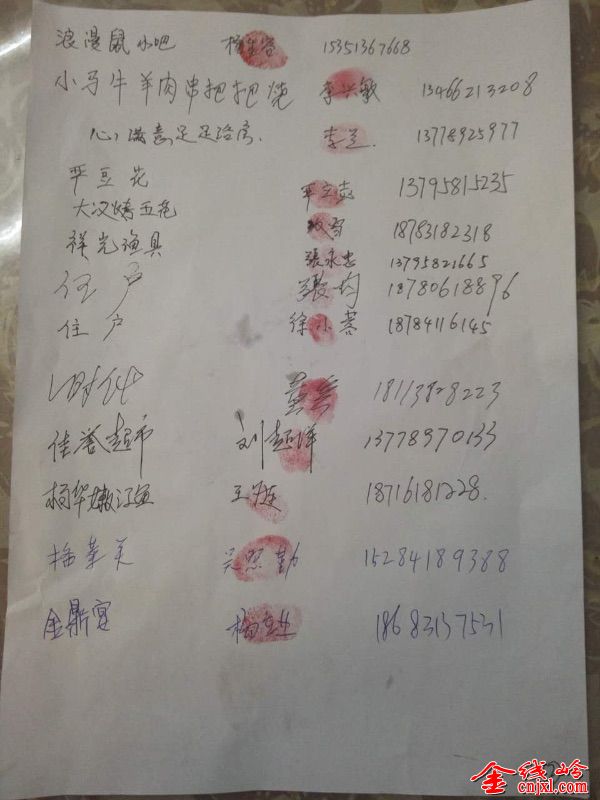 浪漫鼠水吧 15351367668
小马牛羊肉串把把烧 李兴敏 13466213208
心满意足足浴房 李兰 13778925977
平豆花 13795815235
大汉烤五花 18783182318
祥光渔具 张永忠 13795821665
住户 张均 18780618896
住户 徐小蓉 18784116145
18113828223
佳誉超市 刘超洋 13778970133
杨华嫩江鱼 18716181228.
吴思勤 15284189388
金鼎宴 18683137531
金线岭
cnjxl.com